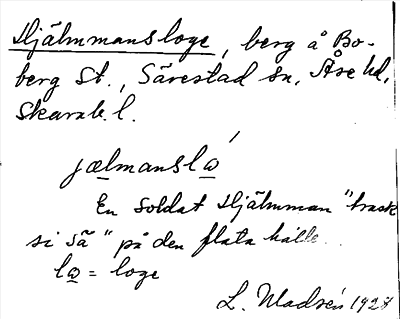 Hjälmmansloge, berg å Bo-
berg St., Särestad sn, Åse hd,
Skarab. l.
jælmanslω
En soldat Hjälmman "trask
si sä" på den flata hälle
lω = loge
L. Madsén 1927